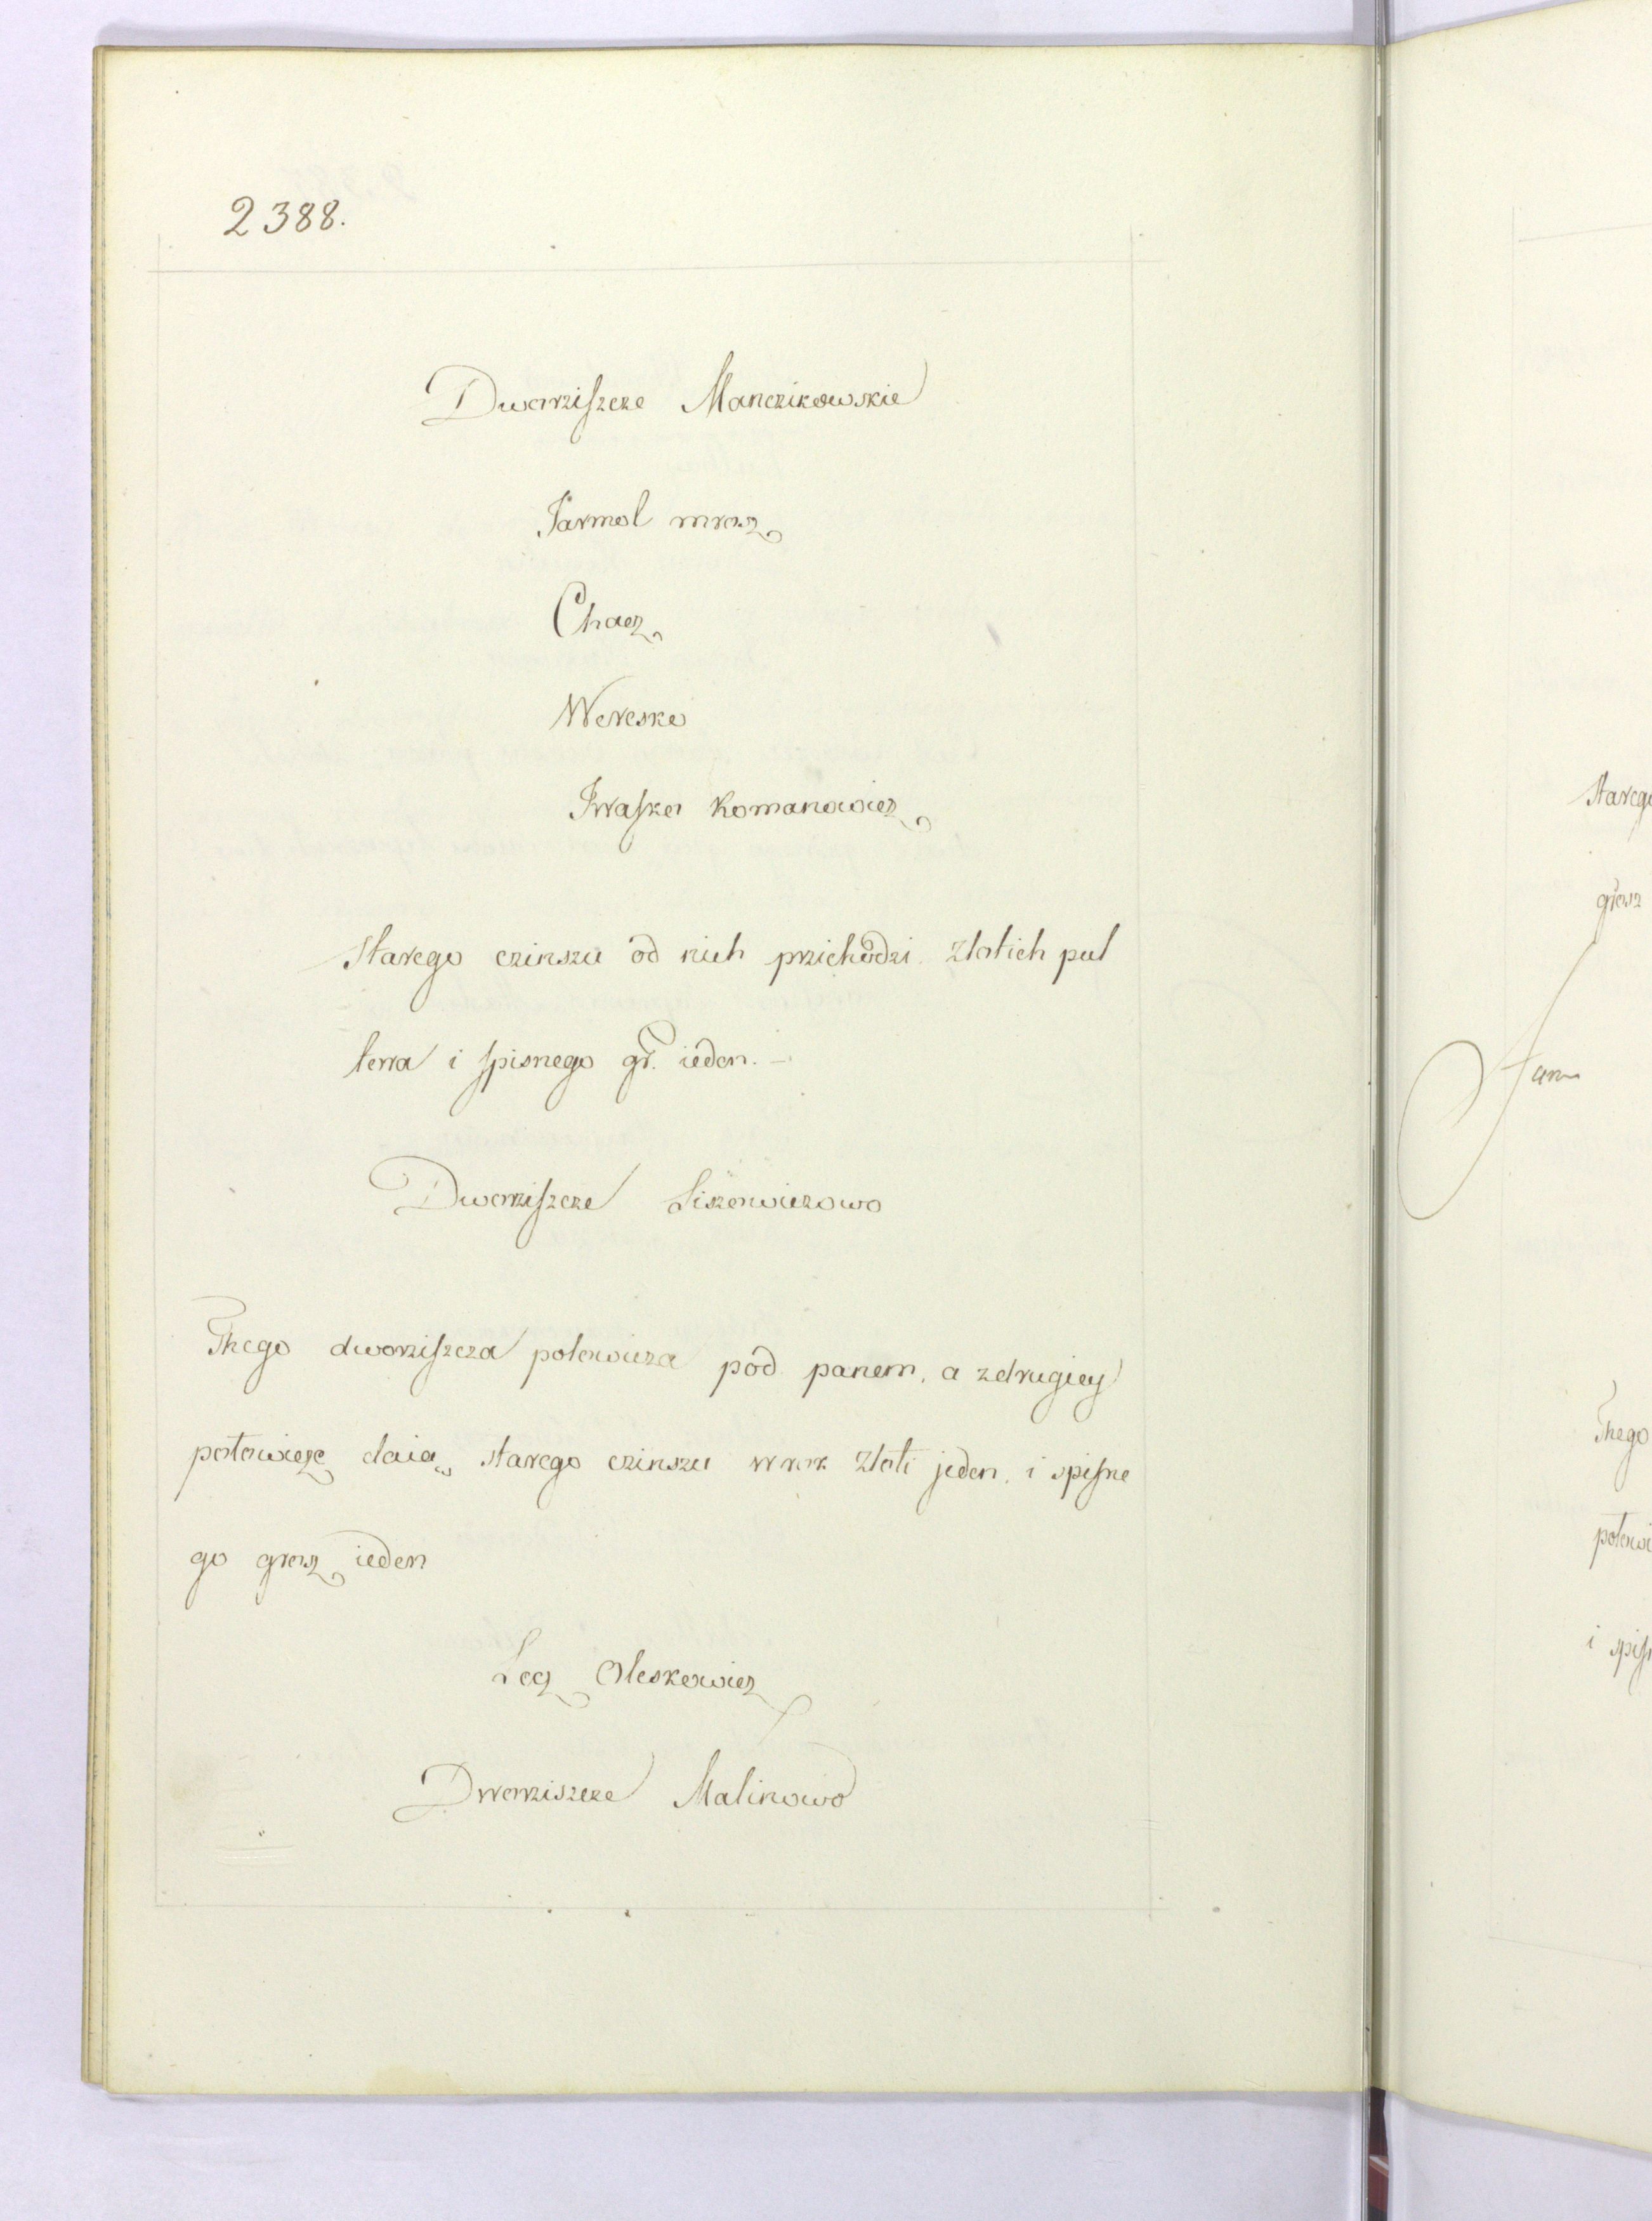 2388.
Dworziszcze Manczikowskie
Jarmol mrosz
Chacz
Weresko
Iwasko Romanowicz
starego czinszu od nich przichodzi złotich pul
tora i spisnego gr. ieden.
Dworziszcze Liszowiczowo
Thego dworziszcza polowicza pod panem, a zdrugiey
połowicze daią starego czinszu w rok złoti jeden. i spisne
go grosz ieden
Lecz Oleskowicz
Dworziszcze Malinowo
starego
grosz
Thego
i spis